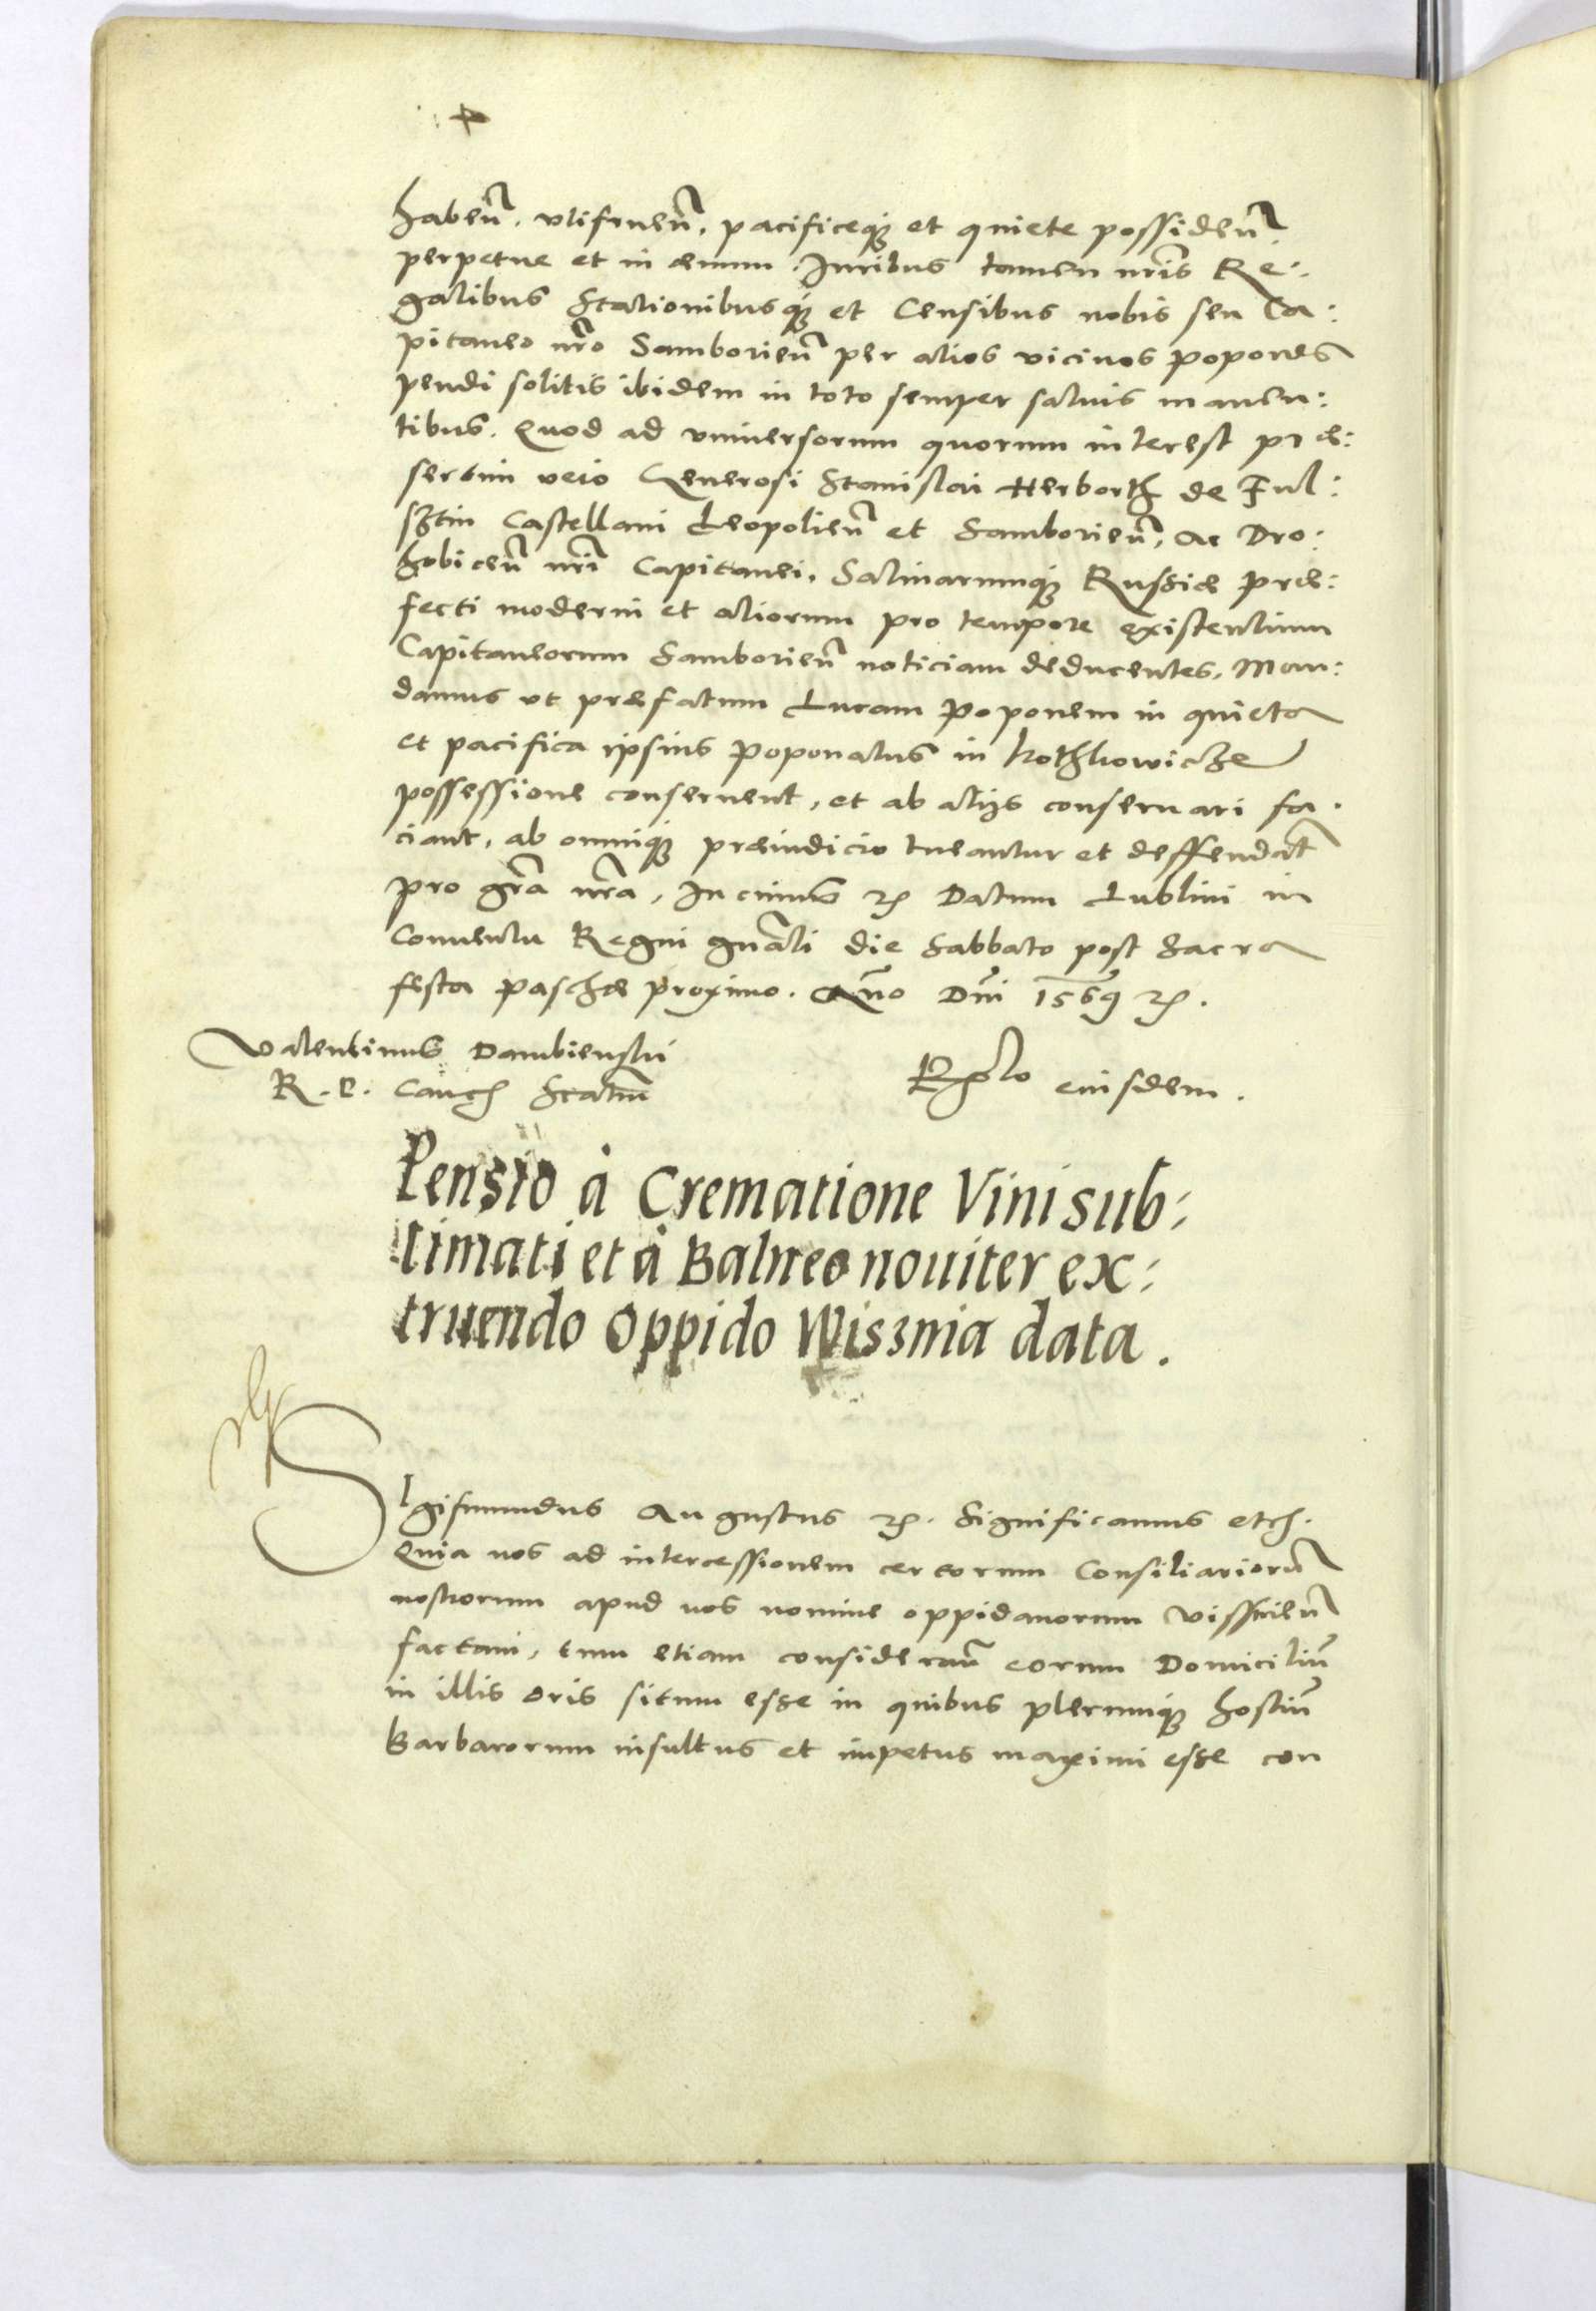 haben̄. vtifruen̄. pacificeq; et quiete possiden̄.
perpetue et in aeuum. Iuribus tamen nr̄is Re:
galibus Stationibusq; et Censibus nobis seu Ca:
pitaneo nr̄o Samborien̄ per alios vicinos popones
pendi solitis ibidem in toto semper saluis manen:
tibus. Quod ad vniuersorum quorum interest prae:
sertim vero Generosi Stanislai Herborth de Ful:
sztin Castellani Leopolien̄ et Samborien̄, ac Dro:
hobicen̄ nr̄i Capitanei, Salinarumq; Russiae prae:
fecti moderni et aliorum pro tempore existentium
Capitaneorum Samborien̄ noticiam deducentes, Man:
damus ut praefatum Lucam Poponem in quieta
et pacifica ipsius Poponatus in hothkowicze
possessione conseruent, et ab alijs conseruari fa:
ciant, ab omniq; praeiudicio tueantur et deffendāt
pro gr̄a nr̄a, In cuius rei Datum Lublini in
Conuentu Regni gn̄ali die Sabbato post Sacra
festa paschae proximo. Año Dn̄i 1569 etc.
Valentinus Dambienski
R. P. Canc. Scr̄ptum
R̄elo eiusdem.
Pensio à Crematione Vini sub:
limati et à Balneo nouiter ex:
truendo oppido Wisznia data.
Sigismundus Augustus etc. Significamus etc.
Quia nos ad intercessionem certorum Consiliariorū
nostrorum apud nos nomine oppidanorum Vissnien̄
factam, tum etiam consideran̄ eorum Domiciliū
in illis oris situm esse in quibus plerumq; hostiū
Barbarorum insultus et impetus maximi esse con